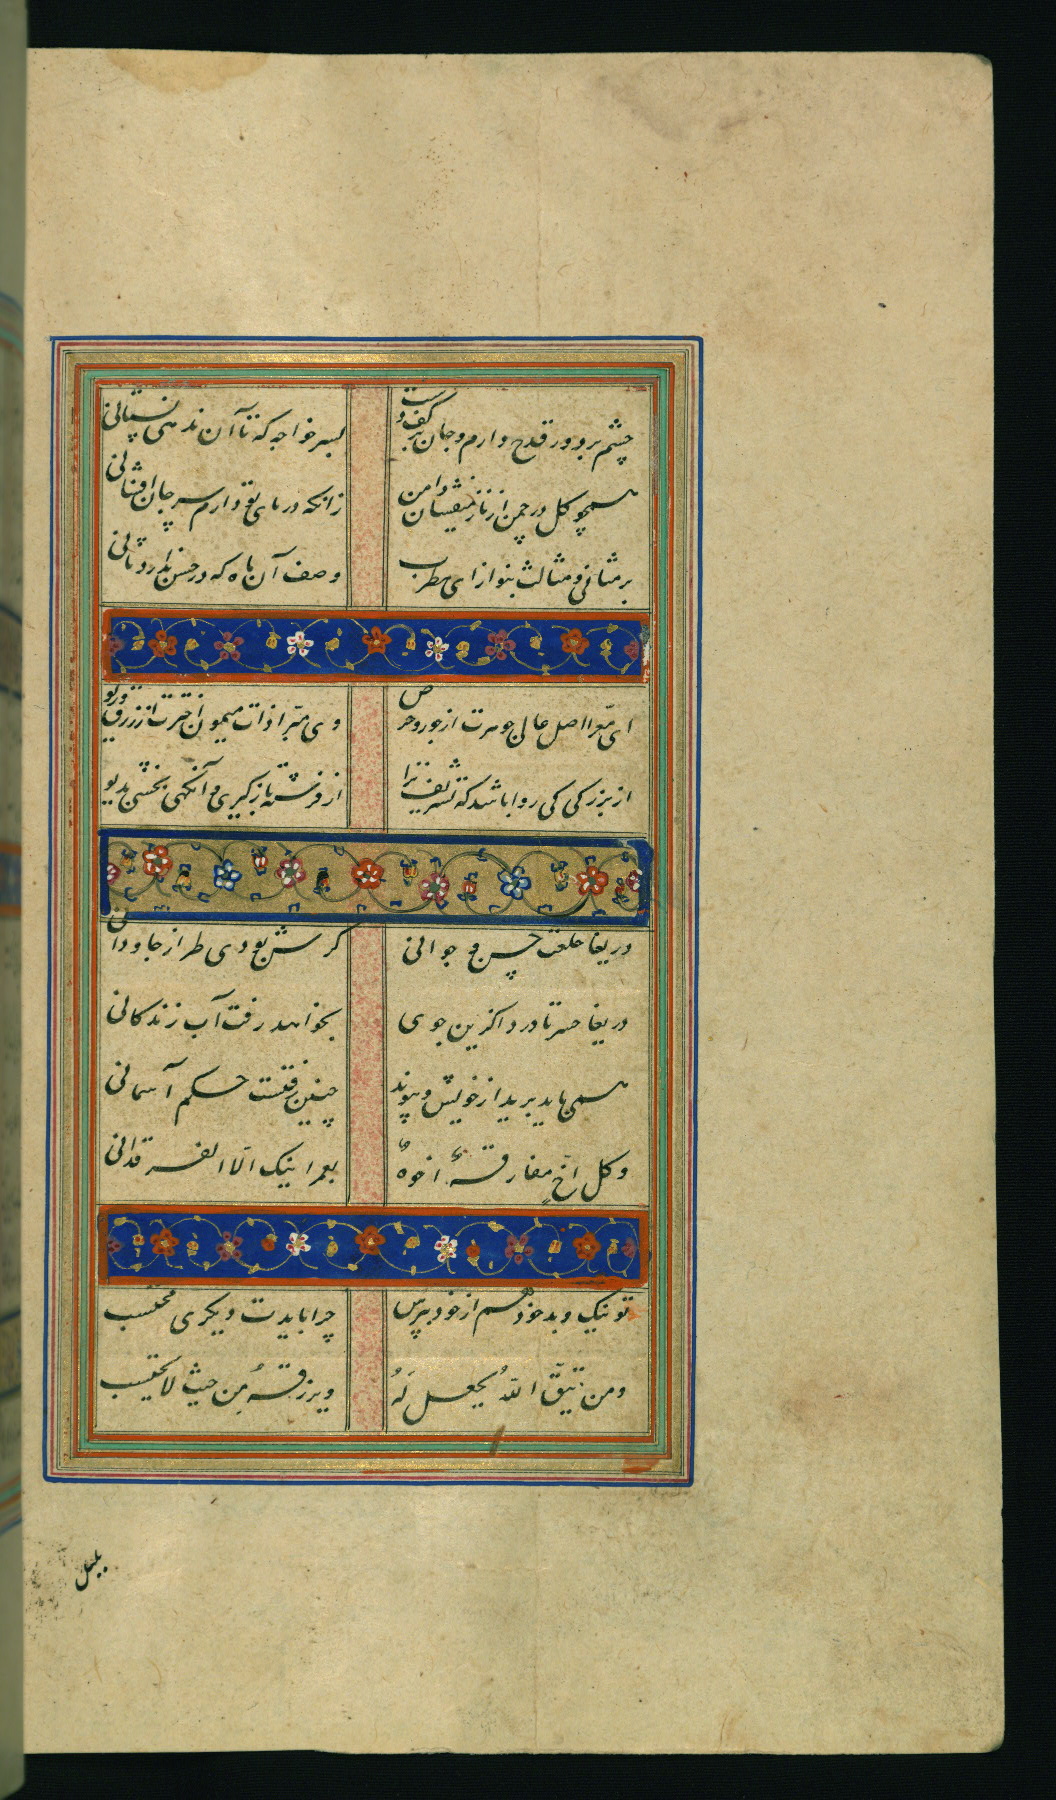 چشم بر دور قدح دارم و جان بر کف دست
بسر خواجه که تا آن ندهی نستانی
همچو گل در چمن از ناز میفشان دامن
زانکه در پای تو دارم سر جان افشانی
بر مثانی و مثالث بنواز ای مطرب
وصف آن ماه که در حسن ندارد ثانی
ای معرا اصل عالی جوهرت از جور و حرص
وی مبرا ذات میمون اخترت از زرق و ریو
از بزرگی کی روا باشد که تشریف ترا
از فرشته باز گیری و آنگهی بخشی بدیو
دریغا خلعت حسن و جوانی
گرش بودی طراز جاودانی
دریغا حسرتا دردا کزین جوی
بخواهد رفت آب زندگانی
همی باید برید از خویش و پیوند
چنین رفتست حکم آسمانی
وکل اخٍ مفارقهُ اخوهُ
لعمر ابیک الّا الفرقدانی
تو نیک و بد خود هم از خود بپرس
چرا بایدت دیگری محتسب
ومن یتّق اللهُ یجعل لَهُ
ویرزقهُ مِن حیثُ لا یحتسب